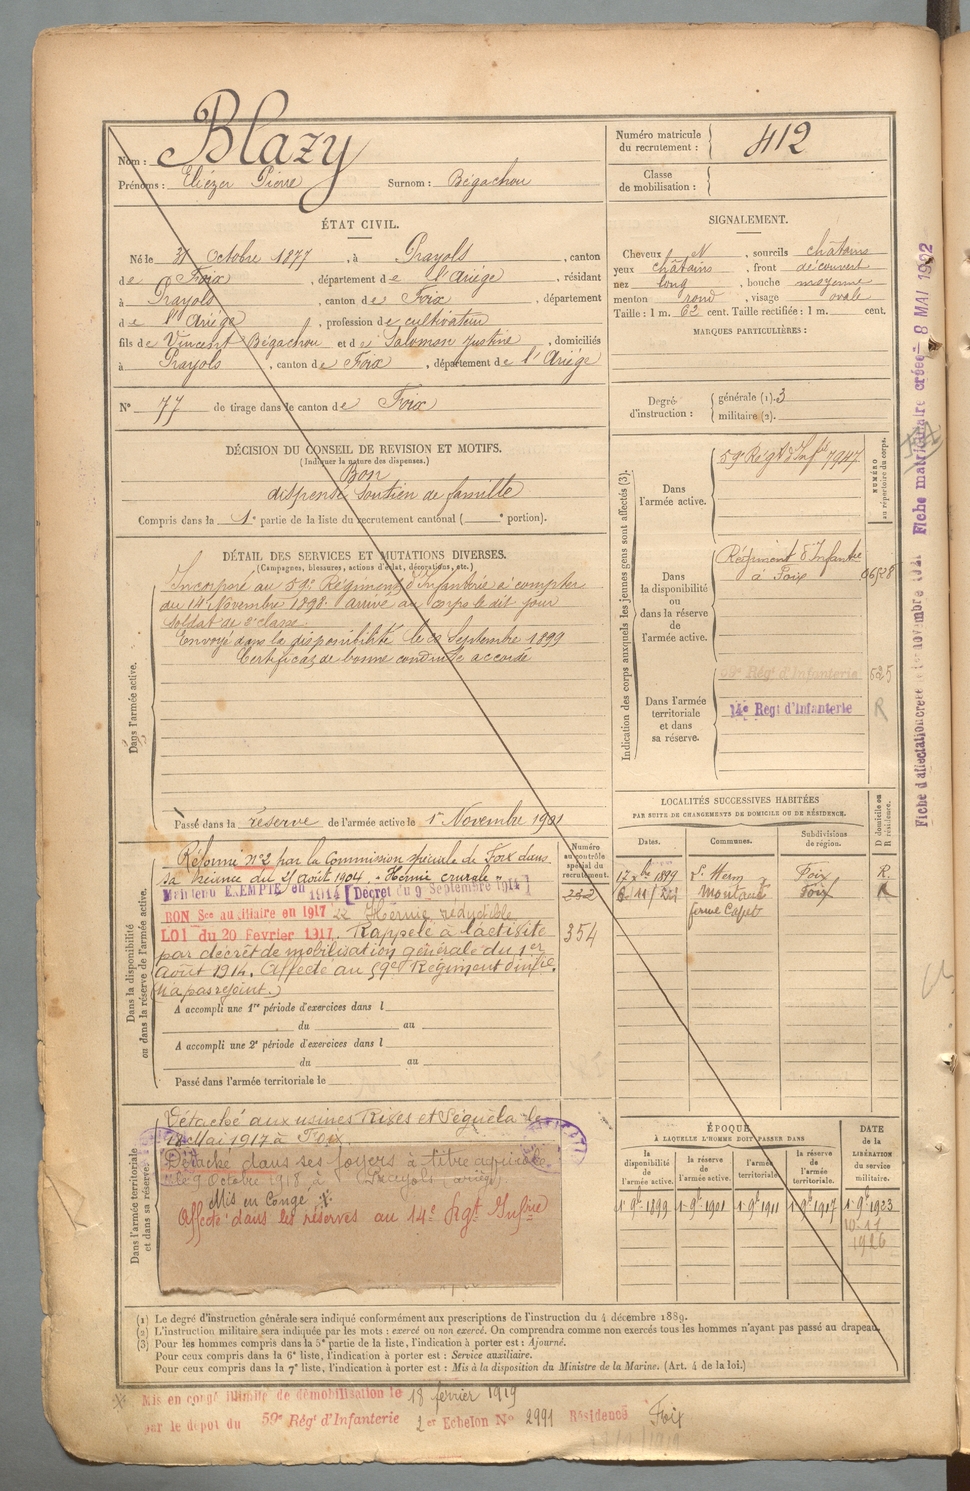 Nom : Blazy
Prénoms : Eliézer Pierre Surnom : Bégachou
Numéro matricule du recrutement : 412
Classe de mobilisation :
ÉTAT CIVIL.
Né le 31 Octobre 1877, à Prayols, canton
de Foix, département de l'Ariège, résidant
à Prayols, canton de Foix, département
de l'Ariège, profession de cultivateur
fils de Vincent Bégachou et de Salomon Justine, domiciliés
à Prayols, canton de Foix, département de l'Ariège
N° 77 de tirage dans le canton de Foix
SIGNALEMENT.
Cheveux N, sourcils châtains
yeux châtains, front découvert
nez long, bouche moyenne
menton rond, visage ovale
Taille : 1 m. 62 cent. Taille rectifiée : 1 m. cent.
MARQUES PARTICULIÈRES :
Degré d'instruction : générale (1). 3
militaire (2).
DÉCISION DU CONSEIL DE REVISION ET MOTIFS.
(Indiquer la nature des dispenses.)
Bon
dispensé soutien de famille
Compris dans la 1e partie de la liste du recrutement cantonal ( e portion).
DÉTAIL DES SERVICES ET MUTATIONS DIVERSES.
(Campagnes, blessures, actions d'éclat, décorations, etc.)
Dans l'armée active.
Incorporé au 59e Régiment d'Infanterie à compter
du 14 Novembre 1898. Arrivé au corps le dit jour
soldat de 2e classe
Envoyé dans la disponibilité le Septembre 1899
Certificat de bonne conduite accordé
Passé dans la réserve de l'armée active le 1r Novembre 1901
Indication des corps auxquels les jeunes gens sont affectés (3).
NUMÉRO au répertoire du corps.
Dans l'armée active.
59e Régt d'Infie 7947
Dans la disponibilité ou dans la réserve de l'armée active.
Régiment d'Infanterie
à Foix
Dans l'armée territoriale et dans sa réserve.
59e Régt d'Infanterie 625
14e Régt d'Infanterie R
LOCALITÉS SUCCESSIVES HABITÉES
PAR SUITE DE CHANGEMENTS DE DOMICILE OU DE RÉSIDENCE.
Dates. Communes. Subdivisions de région. D domicile ou R résidence.
17 Xbre 1899 L'Herm Foix R.
Montaut Foix R
ferme
Dans la disponibilité ou dans la réserve de l'armée active.
Numéro au contrôle spécial du recrutement.
Réformé n°2 par la Commission spéciale de Foix dans
sa séance du 21 août 1904. "Hernie crurale"
Maintenu EXEMPTÉ en 1914 [Décret du 9 Septembre 1914]
BON Sce auxiliaire en 1917 Hernie réductible
LOI du 20 Fevrier 1917. Rappelé à l'activité
par décret de mobilisation générale du 1er
Août 1914. Affecté au 59e Régiment d'infie.
(n'a pas rejoint.)
354
A accompli une 1re période d'exercices dans l
du au
A accompli une 2e période d'exercices dans l
du au
Passé dans l'armée territoriale le
Dans l'armée territoriale et dans sa réserve.
Détaché aux usines et Séguéla le
18 Mai 1917 à Foix.
Détaché dans ses foyers à titre agricole
le 9 Octobre 1918, à (Prayols, ariège)
Mis en Congé
Affecté dans les réserves au 14e Rgt Infrie
ÉPOQUE
À LAQUELLE L'HOMME DOIT PASSER DANS
la disponibilité de l'armée active. la réserve de l'armée active. l'armée territoriale. la réserve de l'armée territoriale. DATE de la LIBÉRATION du service militaire.
1r 9bre 1899 1r 9bre 1901 1r 9bre 1911 1r 9bre 1917 1r 9bre 1923
10-11
1926
(1) Le degré d'instruction générale sera indiqué conformément aux prescriptions de l'instruction du 4 décembre 1889.
(2) L'instruction militaire sera indiquée par les mots : exercé ou non exercé. On comprendra comme non exercés tous les hommes n'ayant pas passé au drapeau.
(3) Pour les hommes compris dans la 5e partie de la liste, l'indication à porter est : Ajourné.
Pour ceux compris dans la 6e liste, l'indication à porter est : Service auxiliaire.
Pour ceux compris dans la 7e liste, l'indication à porter est : Mis à la disposition du Ministre de la Marine. (Art. 4 de la loi.)
Mis en congé illimité de démobilisation le 18 fevrier 1919
par le dépôt du 59e Régt d'Infanterie 2er Echelon N° 2991 Résidence Foix
Fiche matriculaire créée 8 MAI 1922
Fiche d'affectation créée